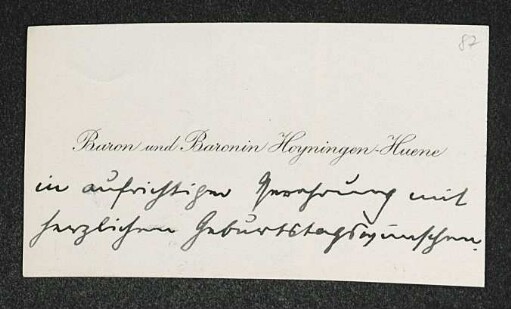 87
Baron und Baronin Hoyningen-Huene
in aufrichtiger Verehrung mit
herzlichen Geburtstagswünschen.